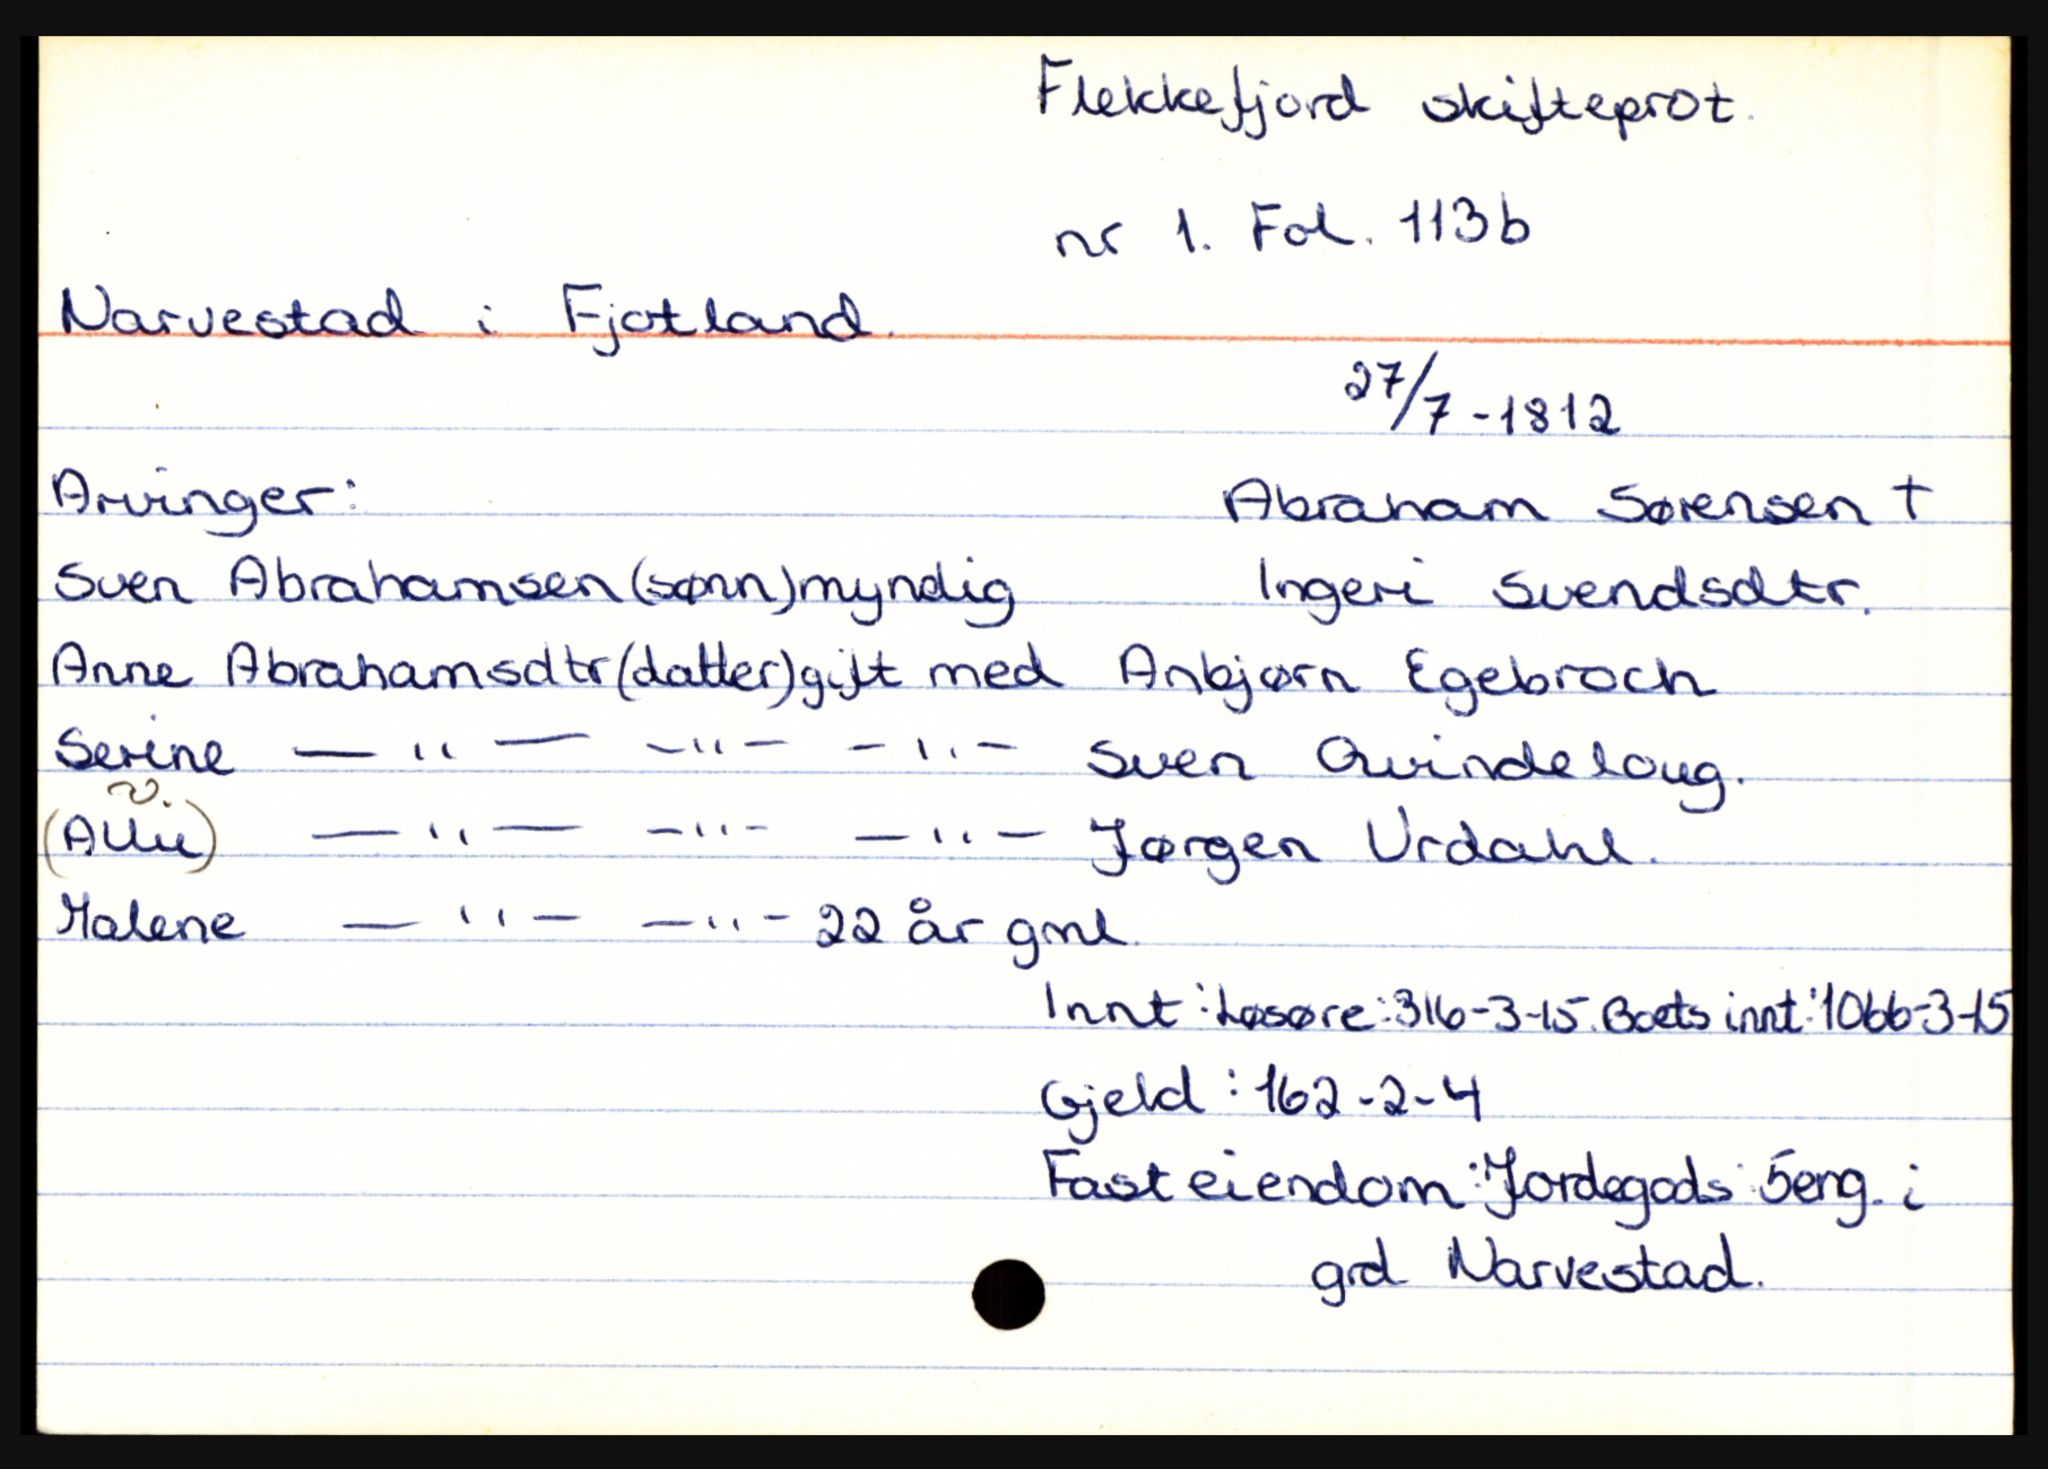 Flekkefjord skifteprot.
nr 1. Fol. 113b
Narvestad i Fjotland.
27/7-1812
Arvinger: Abraham Sørensen †
Sven Abrahamsen (sønn) myndig Ingeri Svendsdtr.
Anne Abrahamsdtr (datter) gift med Anbjørn Egebroch
Serine — " — — " — — " — Sven Qvindeloug.
v.
(Allü) — " — — " — — " — Jørgen Urdahl.
Malene — " — — " — 22 år gml.
Innt: Løsøre: 316-3-15. Boets innt: 1066-3-15
Gjeld: 162-2-4
Fast eiendom: Jordegods: 5 eng. i
grd Narvestad.